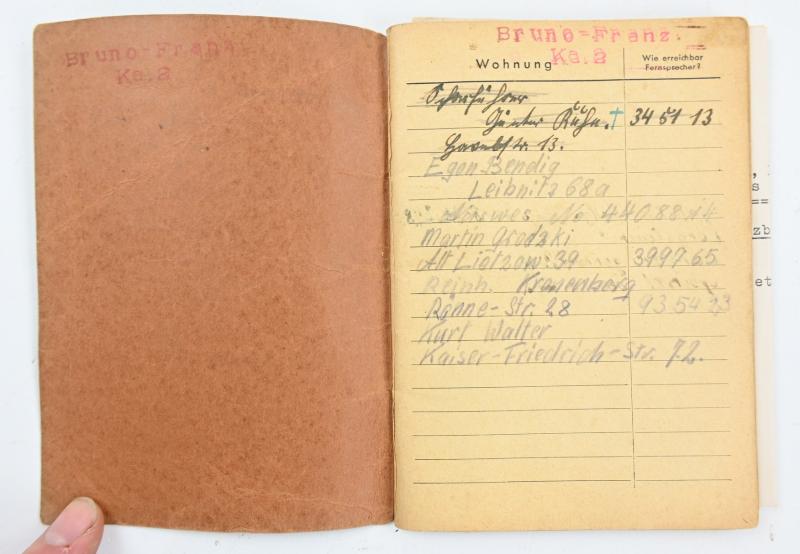 Bruno-Franz
Ka.2
Bruno=Franz.
Ka.2
Wohnung
Wie erreichbar
Fernsprecher?
Scharführer
Günter Kühn. † 34 51 13
Havelstr. 13.
Egon Bendig
Leibnitz 68a
No 44088
Martin Grodzki
Alt Lietzow: 39 3997 65
Reinh. Kranenberg
Rönne-Str. 28 93 54 23
Kurt Walter
Kaiser-Friedrich-Str. 72.
s
==
zb
et